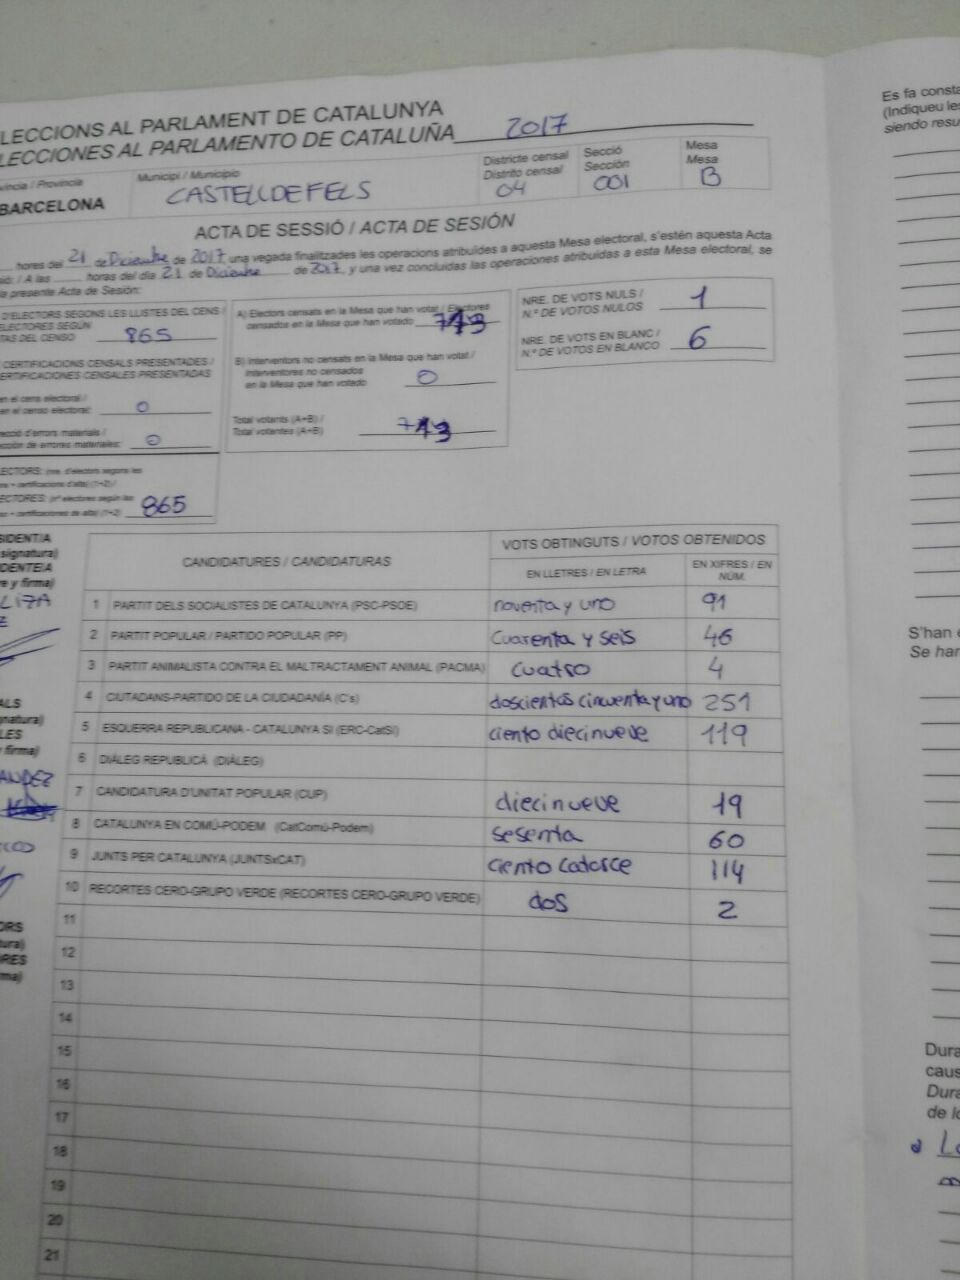 LECCIONS AL PARLAMENT DE CATALUNYA
LECCIONES AL PARLAMENTO DE CATALUÑA 2017
víncia / Provincia
BARCELONA
Municipi / Municipio
CASTELLDEFELS
Districte censal
Distrito censal
04
Secció
Sección
001
Mesa
Mesa
B
ACTA DE SESSIÓ / ACTA DE SESIÓN
hores del 21 de Diciembre de 2017 una vegada finalitzades les operacions atribuïdes a aquesta Mesa electoral, s'estén aquesta Acta
sió: / A las horas del día 21 de Diciembre de 2017, y una vez concluidas las operaciones atribuidas a esta Mesa electoral, se
la presente Acta de Sesión:
D'ELECTORS SEGONS LES LLISTES DEL CENS /
ELECTORES SEGÚN
TAS DEL CENSO 865
CERTIFICACIONS CENSALS PRESENTADES /
ERTIFICACIONES CENSALES PRESENTADAS
en el cens electoral /
en el censo electoral: 0
recció d'errors materials /
cción de errores materiales: 0
ECTORS: (nre. d'electors segons les
ns + certificacions d'alta) (1+2) /
ECTORES: (nº electores según las
so + certificaciones de alta) (1+2) 865
A) Electors censats en la Mesa que han votat / Electores
censados en la Mesa que han votado
B) Interventors no censats en la Mesa que han votat /
Interventores no censados
en la Mesa que han votado 0
Total votants (A+B) /
Total votantes (A+B)
NRE. DE VOTS NULS /
N.º DE VOTOS NULOS 1
NRE. DE VOTS EN BLANC /
N.º DE VOTOS EN BLANCO 6
SIDENT/A
signatura)
DENTE/A
e y firma)
ALS
gnatura)
LES
y firma)
ANDEZ
ORS
tura)
RES
ma)
CANDIDATURES / CANDIDATURAS
VOTS OBTINGUTS / VOTOS OBTENIDOS
EN LLETRES / EN LETRA
EN XIFRES / EN
NÚM.
1 PARTIT DELS SOCIALISTES DE CATALUNYA (PSC-PSOE) noventa y uno 91
2 PARTIT POPULAR / PARTIDO POPULAR (PP) Cuarenta y seis 46
3 PARTIT ANIMALISTA CONTRA EL MALTRACTAMENT ANIMAL (PACMA) cuatro 4
4 CIUTADANS-PARTIDO DE LA CIUDADANÍA (C's) doscientos cincuenta y uno 251
5 ESQUERRA REPUBLICANA - CATALUNYA SI (ERC-CatSí) ciento diecinueve 119
6 DIÀLEG REPUBLICÀ (DIÀLEG)
7 CANDIDATURA D'UNITAT POPULAR (CUP) diecinueve 19
8 CATALUNYA EN COMÚ-PODEM (CatComú-Podem) sesenta 60
9 JUNTS PER CATALUNYA (JUNTSxCAT) ciento catorce 114
10 RECORTES CERO-GRUPO VERDE (RECORTES CERO-GRUPO VERDE) dos 2
11
12
13
14
15
16
17
18
19
20
21
Es fa consta
(Indiqueu les
siendo resu
S'han e
Se har
Dura
caus
Dura
de lo